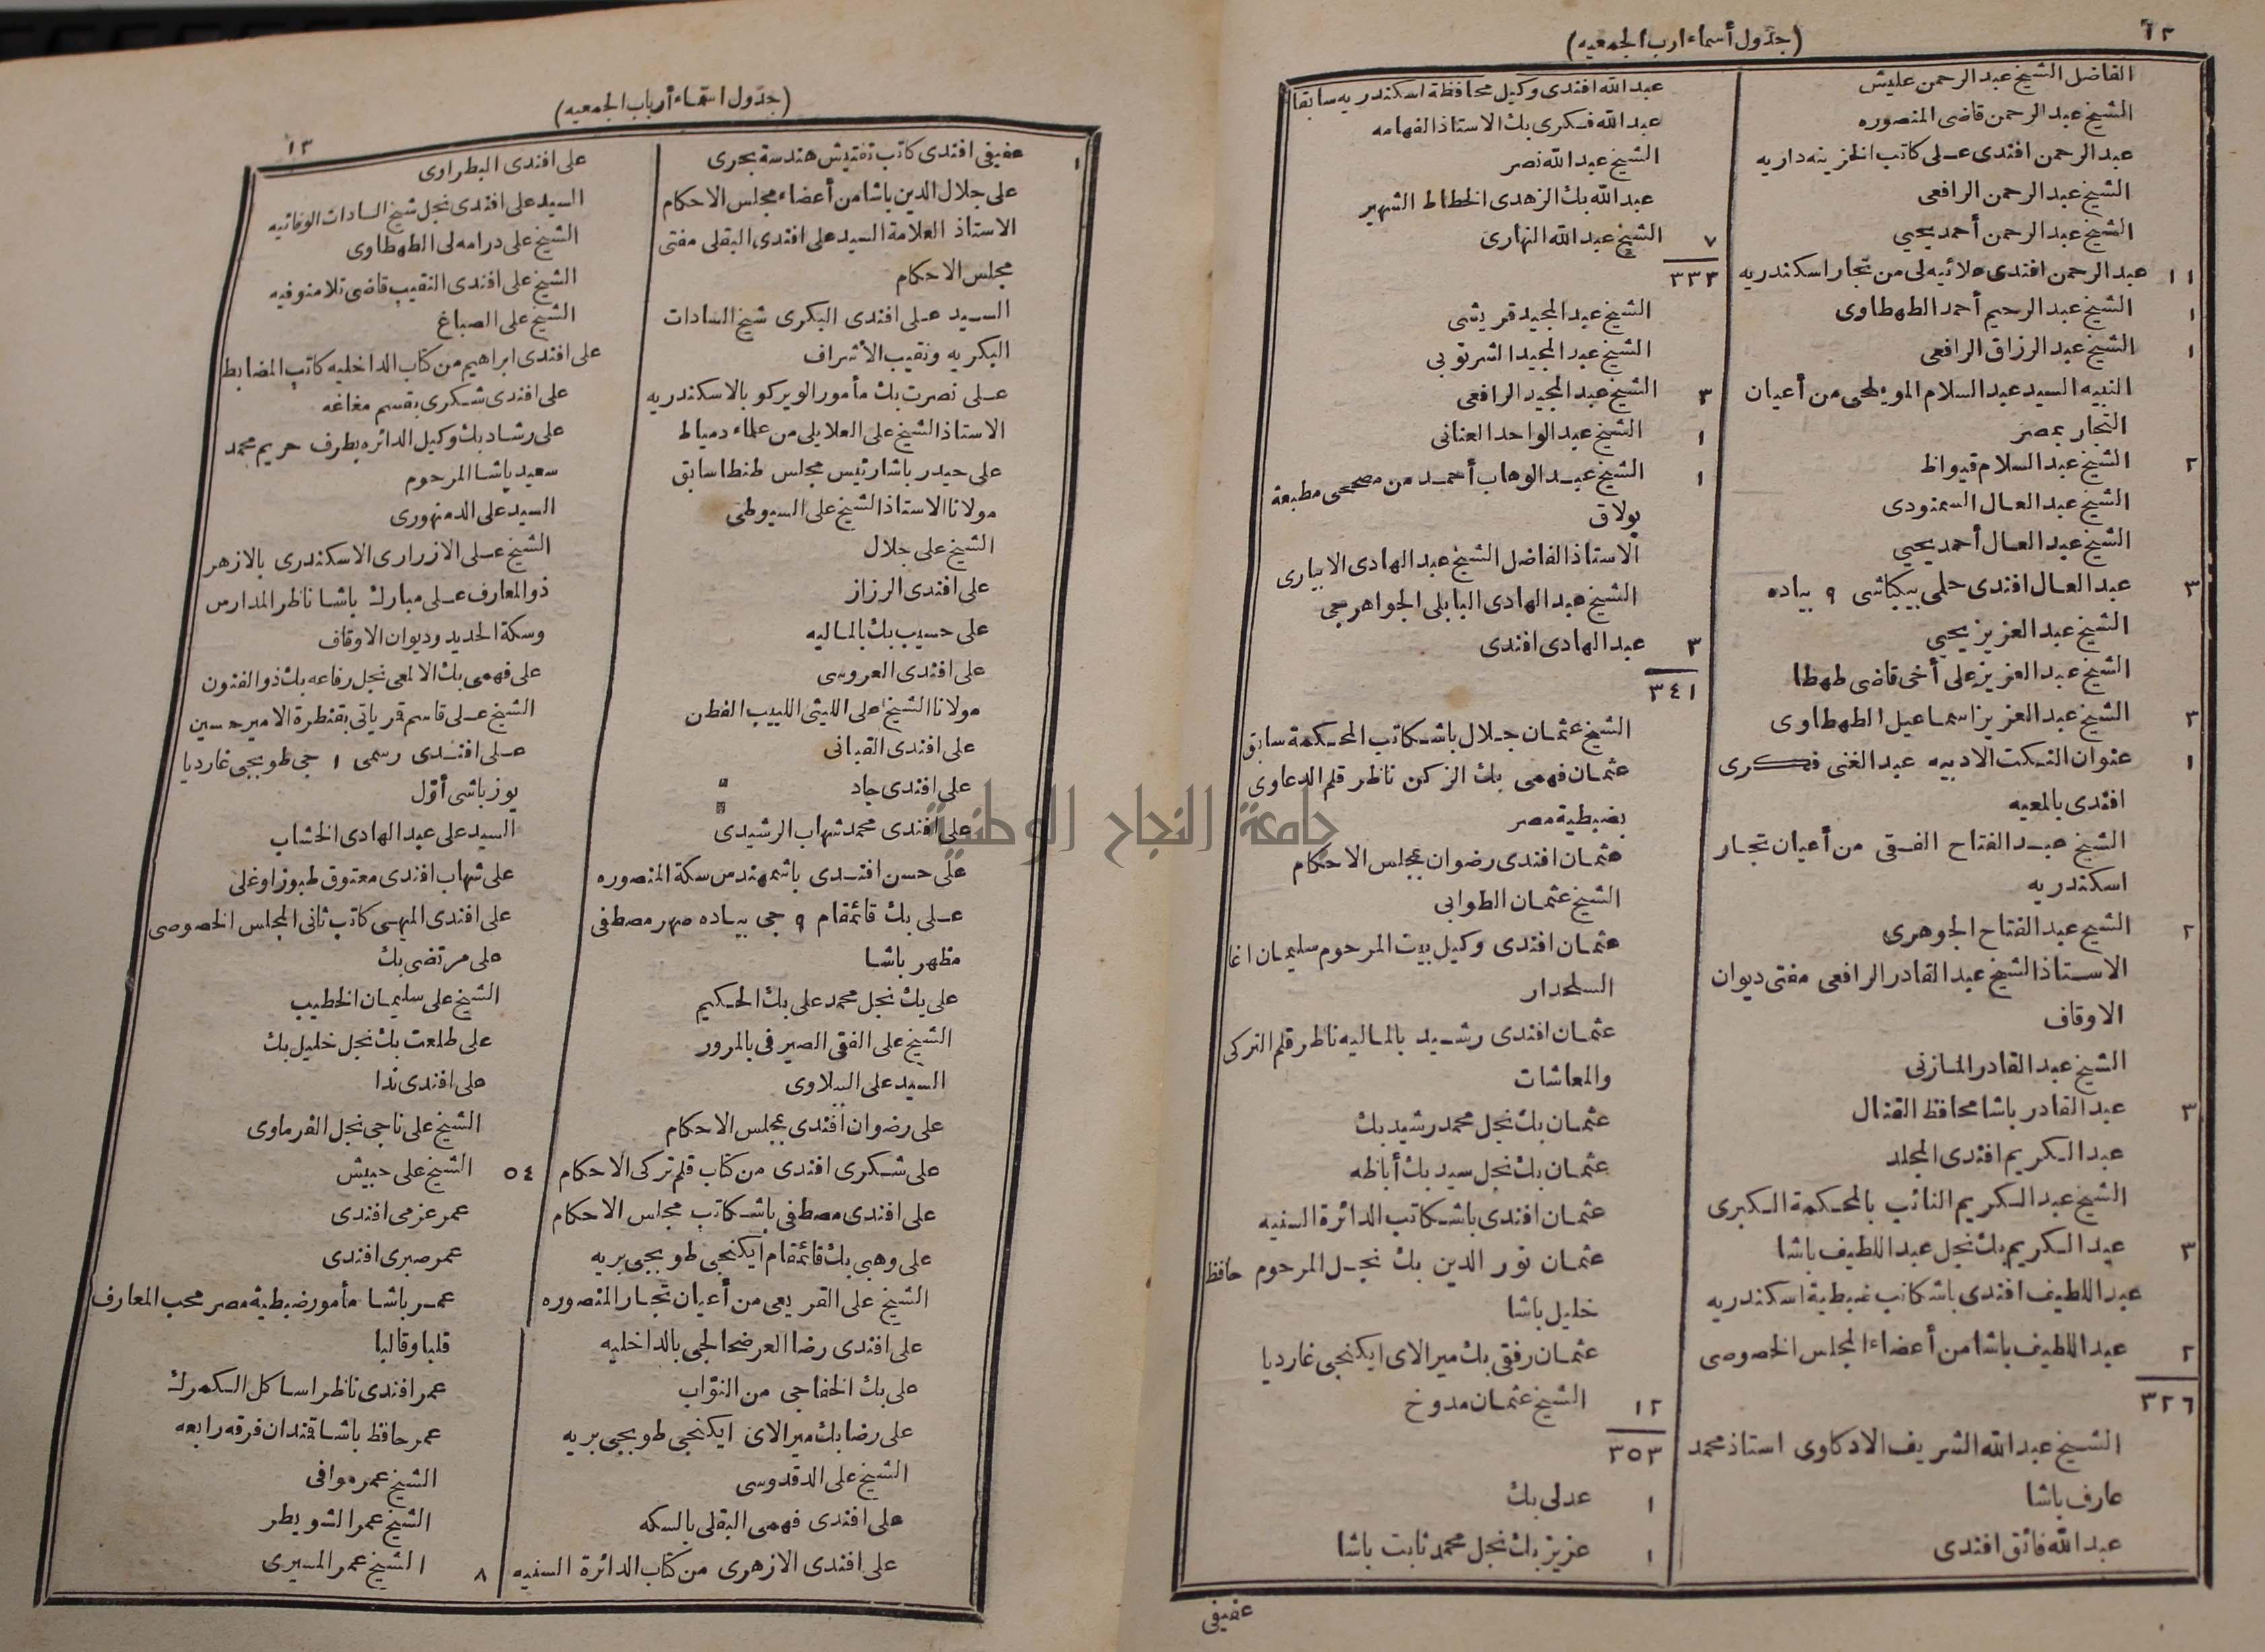 ١٢
(جدول أسماء ارب الجمعيه)
الفاضل الشيخ عبد الرحمن عليش
الشيخ عبد الرحمن قاضى المنصوره
عبد الرحمن افندى على كاتب الخزينه داريه
الشيخ عبد الرحمن الرافعى
الشيخ عبد الرحمن أحمد يحيي
١١ عبد الرحمن افندى علائيه لى من تجار اسكندريه
١ الشيخ عبد الرحيم أحمد الطهطاوى
١ الشيخ عبد الرزاق الرافعى
النبيه السيد عبد السلام المويلحى من أعيان
التجار بمصر
٢ الشيخ عبد السلام قيواظ
الشيخ عبد العال السمنودى
الشيخ عبد العال أحمد يحيي
٣ عبد العال افندى حلمى بيكباشى ٩ بياده
الشيخ عبد العزيز يحيي
الشيخ عبد العزيز على أخى قاضى طهطا
٣ الشيخ عبد العزيز اسماعيل الطهطاوى
١ عنوان النكت الادبيه عبد الغنى فكرى
افندى بالمعيه
الشيخ عبد الفتاح الفقى من أعيان تجار
اسكندريه
٢ الشيخ عبد الفتاح الجوهرى
الاستاذ الشيخ عبد القادر الرافعى مفتى ديوان
الاوقاف
الشيخ عبد القادر المازنى
٣ عبد القادر باشا محافظ القنال
عبد الكريم افندى المجلد
الشيخ عبد الكريم النائب بالمحكمة الكبرى
٣ عبد الكريم بك نجل عبد اللطيف باشا
عبد اللطيف افندى باشكاتب ضبطية اسكندريه
٢ عبد اللطيف باشا من أعضاء المجلس الخصوصى
٣٢٦
الشيخ عبد الله الشريف الادكاوى استاذ محمد
عارف باشا
عبد الله فائق افندى
عبد الله افندى وكيل محافظة اسكندريه سابقا
عبد الله فكرى بك الاستاذ الفهامه
الشيخ عبد الله نصر
عبد الله بك الزهدى الخطاط الشهير
٧ الشيخ عبد الله النهارى
٣٣٣
الشيخ عبد المجيد قريشى
الشيخ عبد المجيد الشرنوبى
٣ الشيخ عبد المجيد الرافعى
١ الشيخ عبد الواحد العنانى
١ الشيخ عبد الوهاب أحمد من مصححى مطبعة
بولاق
الاستاذ الفاضل الشيخ عبد الهادى الابيارى
الشيخ عبد الهادى البابلى الجواهرجى
٣ عبد الهادى افندى
٣٤١
الشيخ عثمان جلال باشكاتب المحكمة سابق
عثمان فهمى بك الزكن ناظر قلم الدعاوى
بضبطية مصر
عثمان افندى رضوان بمجلس الاحكام
الشيخ عثمان الطوابى
عثمان افندى وكيل بيت المرحوم سليمان اغا
السلحدار
عثمان افندى رشيد بالماليه ناظر قلم التركى
والمعاشات
عثمان بك نجل محمد رشيد بك
عثمان بك نجل سيد بك أباظه
عثمان افندى باشكاتب الدائرة السنيه
عثمان نور الدين بك نجل المرحوم حافظ
خليل باشا
عثمان رفقى بك ميرالاى ايكنجى غارديا
١٢ الشيخ عثمان مدوخ
٣٥٣
١ عدلى بك
١ عزيز بك نجل محمد ثابت باشا
عفيفى
(جدول اسماء أرباب الجمعيه)
١٣
١ عفيفى افندى كاتب تفتيش هندسة بحرى
على جلال الدين باشا من أعضاء مجلس الاحكام
الاستاذ العلامة السيد على افندى البقلى مفتى
مجلس الاحكام
السيد على افندى البكرى شيخ السادات
البكريه ونقيب الأشراف
على نصرت بك مأمور الويركو بالاسكندريه
الاستاذ الشيخ على العلايلى من علماء دمياط
على حيدر باشا رئيس مجلس طنطا سابق
مولانا الاستاذ الشيخ على السيوطى
الشيخ على جلال
على افندى الرزاز
على حسيب بك بالماليه
على افندى العروسى
مولانا الشيخ على الليثى اللبيب الفطن
على افندى القبانى
على افندى جاد
على افندى محمد شهاب الرشيدى
على حسن افندى باشمهندس سكة المنصوره
على بك قائمقام ٩ جى بياده صهر مصطفى
مظهر باشا
على بك نجل محمد على بك الحكيم
الشيخ على الفقى الصيرفى بالمرور
السيد على الببلاوى
على رضوان افندى بمجلس الاحكام
على شكرى افندى من كتاب قلم تركى الاحكام
على افندى مصطفى باشكاتب مجلس الاحكام
على وهبى بك قائمقام ايكنجى طوبجى بريه
الشيخ على القريعى من أعيان تجار المنصوره
على افندى رضا العرضحالجى بالداخليه
على بك الخفاجى من النوّاب
على رضا بك ميرالاى ايكنجى طوبجى بريه
الشيخ على الدقدوسى
على افندى فهمى البقلى بالسكه
على افندى الازهرى من كتاب الدائرة السنيه
على افندى البطراوى
السيد على افندى نجل شيخ السادات الوفائيه
الشيخ على درامه لى الطهطاوى
الشيخ على افندى النقيب قاضى تلا منوفيه
الشيخ على الصباغ
على افندى ابراهيم من كتاب الداخليه كاتب المضابط
على افندى شكرى بقسم مغاغه
على رشاد بك وكيل الدائره بطرف حريم محمد
سعيد باشا المرحوم
السيد على الدمنهورى
الشيخ على الازرارى الاسكندرى بالازهر
ذو المعارف على مبارك باشا ناظر المدارس
وسكة الحديد وديوان الاوقاف
على فهمى بك الالمعى نجل رفاعه بك ذو الفنون
الشيخ على قاسم قرباتى بقنطرة الامير حسين
على افندى رسمى ١ جى طوبجى غارديا
يوزباشى أوّل
السيد على عبد الهادى الخشاب
على شهاب افندى معتوق طبوز اوغلى
على افندى المهسى كاتب ثانى المجلس الخصوصى
على مرتضى بك
الشيخ على سليمان الخطيب
على طلعت بك نجل خليل بك
على افندى ندا
الشيخ على ناجى نجل الفرماوى
٥٤ الشيخ على حبيش
عمر عزمى افندى
عمر صبرى افندى
عمر باشا مأمور ضبطية مصر محب المعارف
قلبا وقالبا
عمر افندى ناظر اساكل الكمرك
عمر حافظ باشا قندان فرقه رابعه
الشيخ عمر موافى
الشيخ عمر الشويطر
٨ الشيخ عمر المسيرى
جامعة النجاح الوطنية